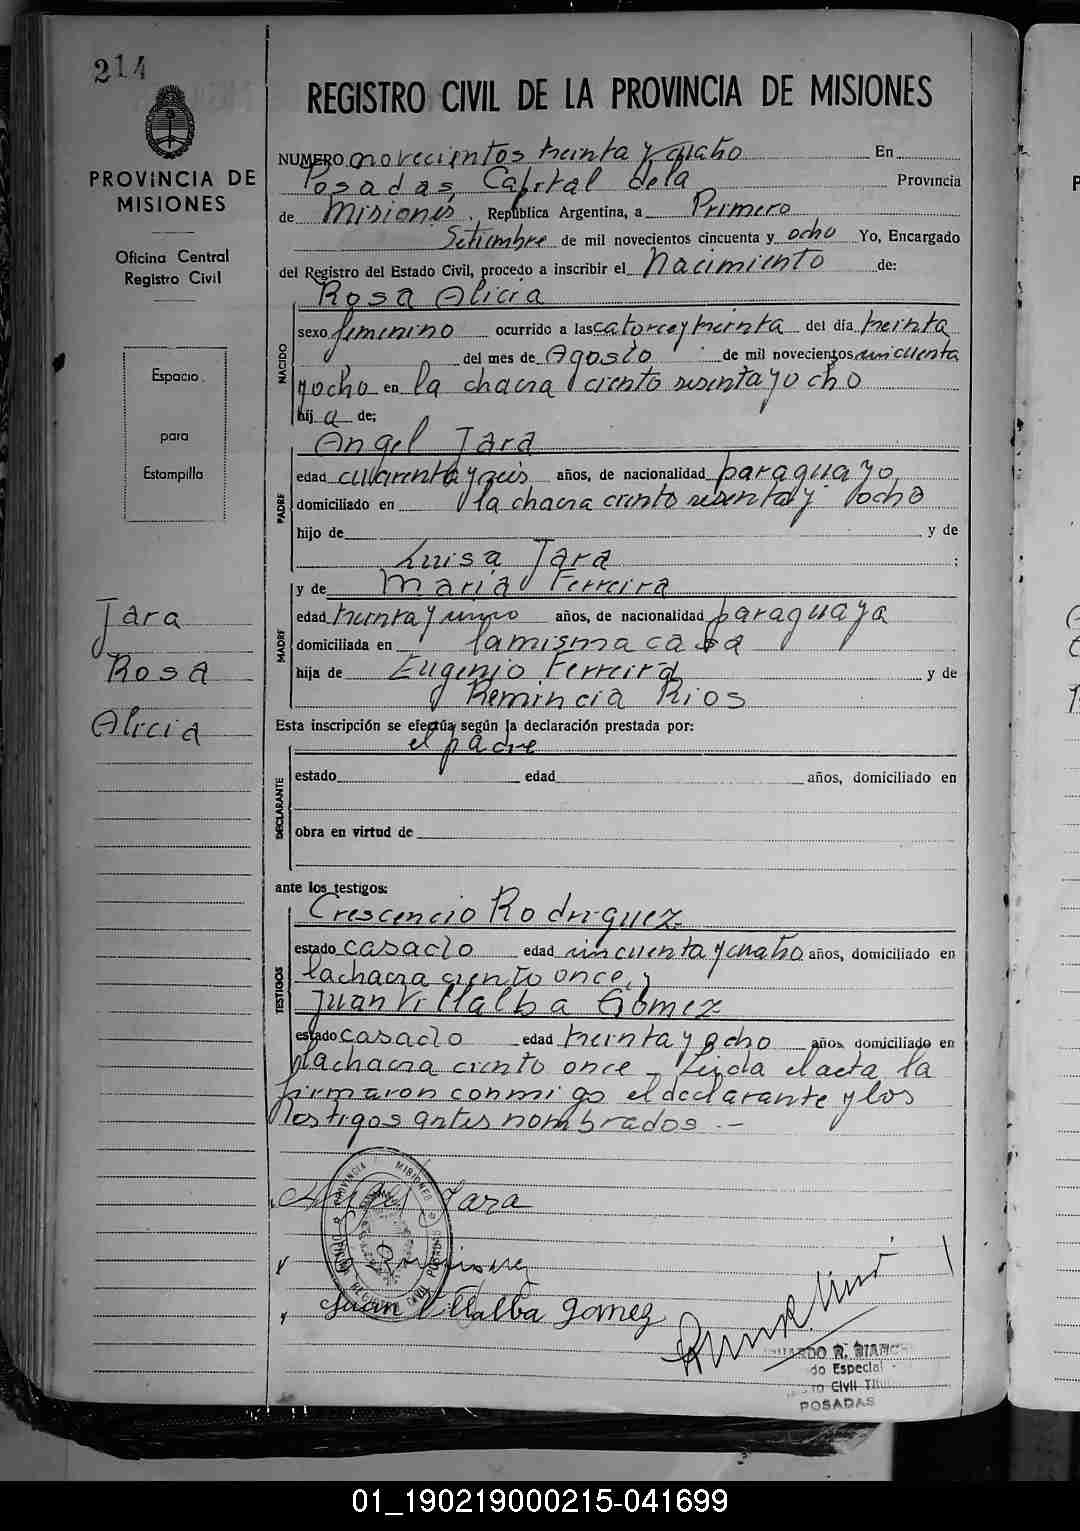 214
PROVINCIA DE
MISIONES
Oficina Central
Registro Civil
Espacio
para
Estampilla
Jara
Rosa
Alicia
REGISTRO CIVIL DE LA PROVINCIA DE MISIONES
NUMERO novecientos treinta y cuatro En
Posadas, Capital dela Provincia
de Misiones. República Argentina, a Primero
Setiembre de mil novecientos cincuenta y ocho Yo, Encargado
del Registro del Estado Civil, procedo a inscribir el Nacimiento de:
Rosa Alicia
NACIDO
sexo femenino ocurrido a las catorce y treinta del día treinta
del mes de Agosto de mil novecientos cincuenta
y ocho en la chacra ciento sesenta y ocho
hij a de;
Angel Jara
PADRE
edad cuarenta y seis años, de nacionalidad paraguayo
domiciliado en la chacra ciento sesenta y ocho
hijo de y de
Luisa Jara ;
y de Maria Ferreira
MADRE
edad treinta y cinco años, de nacionalidad paraguaya
domiciliada en la misma casa
hija de Eugenio Ferreira y de
Remincia Rios
Esta inscripción se efectúa según la declaración prestada por:
el padre
DECLARANTE
estado edad años, domiciliado en
obra en virtud de
ante los testigos:
Crescencio Rodriguez
TESTIGOS
estado casado edad cincuenta y cuatro años, domiciliado en
la chacra ciento once, y
Juan Villalba Gómez
estado casado edad treinta y ocho años, domiciliado en
la chacra ciento once - Leida el acta la
firmaron conmigo el declarante y los
testigos antes nombrados. -
Jara
PROVINCIA MISIONES
Juan Villalba Gomez
R. BIANC
do Especial
Civil
POSADAS
01_190219000215-041699